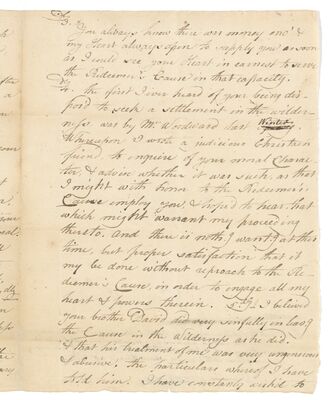 3. You always knew there was money eno' &
my Heart always open to supply you as soon
as I could see your Heart in earnest to serve
the Redeemer's Cause in that capacity.
4. the first I ever heard of your being dis-
pos'd to seek a settlement in the wilder-
ness was by Mr Woodward last Winter
Whereupon I wrote a judicious Christian
friend to enquire of your moral Charac-
ter, & advise whether it was such, as that
I might with honor to the Redeemer's
Cause employ you & hoped to hear that
which might warrant my proceeding
thereto and there is noth.g I want at this
time, but proper satisfaction that it
my be done without reproach to the Re-
deemer's Cause, in order to engage all my
heart & powers therein. I believed
your brother David did very sinfully in leav.g
the Cause in the wilderness as he did.
& that his treatment of me was very
& abusive, the particulars whereof I have
told him. I have constantly wished to